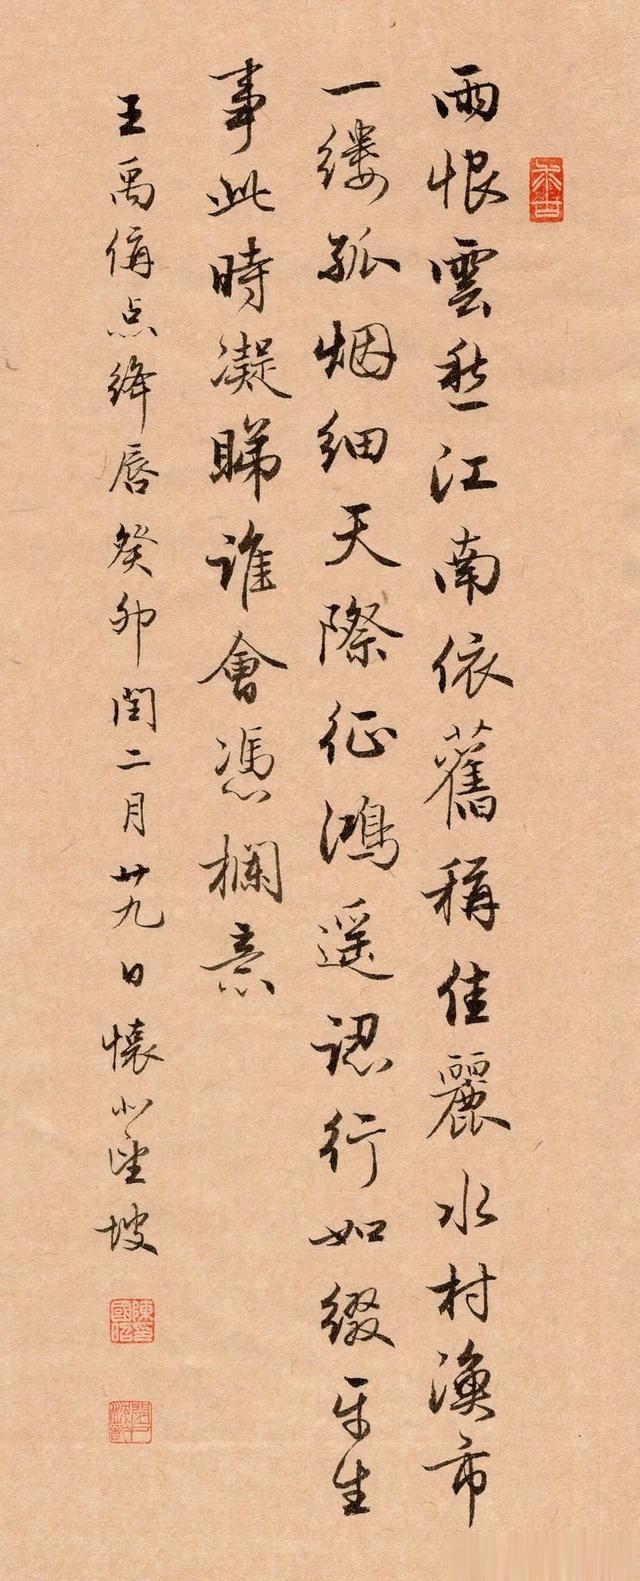 雨恨雲愁江南依舊稱佳麗水村漁市
一縷孤烟細天際征鴻遥認行如綴平生
事此時凝睇誰會憑欄意
王禹偁点絳唇癸卯閏二月廿九日懷坡